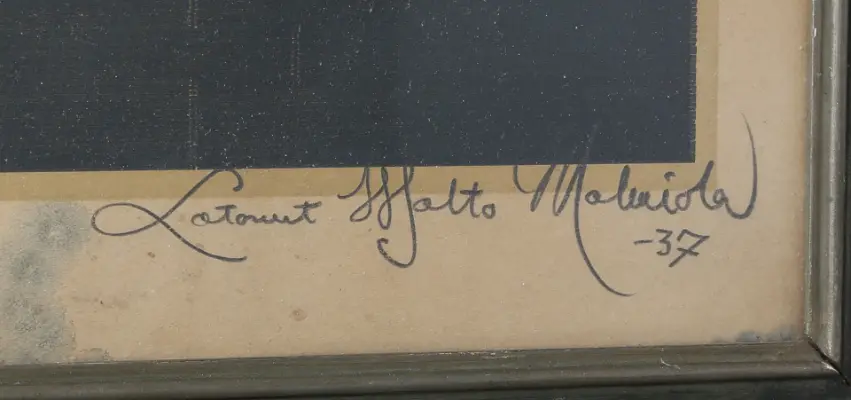 Latonut Walto Malmiola
-37